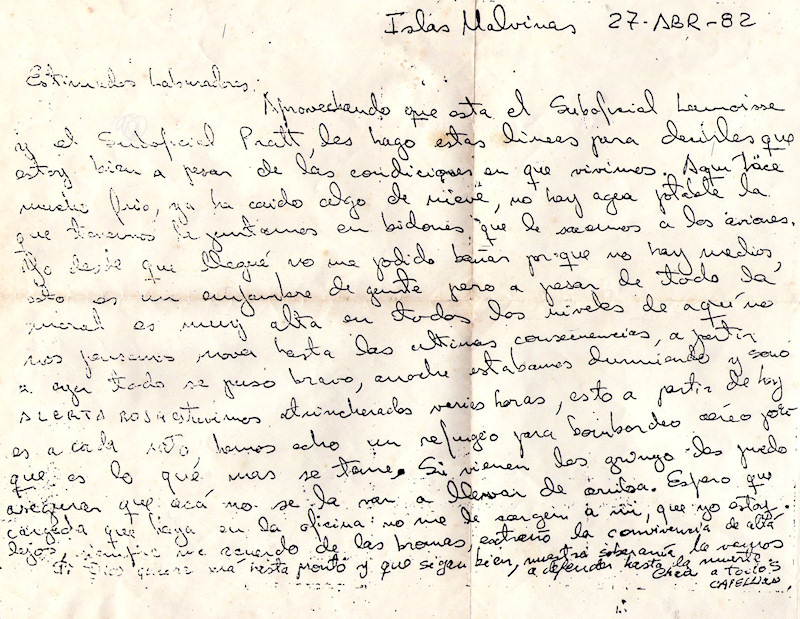 Islas Malvinas 27-ABR-82
Estimados Laburadores:
Aprovechando que esta el Suboficial
y el Suboficial Pratt, les hago estas lineas para decirles que
estoy bien a pesar de las condiciones en que vivimos. Aqui hace
mucho frio, ya ha caido algo de nieve, no hay agua potable la
que tenemos la juntamos en bidones que le sacamos a los aviones.
Yo desde que llegué no me podido bañar porque no hay medios,
esto es un enjambre de gente pero a pesar de todo la
moral es muy alta en todos los niveles de aquí no
nos hasta las ultimas consecuencias, a partir
a ayer todo se puso bravo, anoche estabamos durmiendo y sonó
ALERTA ROJA estuvimos atrincherados varias horas, esto a partir de hoy
es a cada rato, hemos echo un refugio para bombardeo aéreo
que es lo qué mas se teme. Si vienen los gringo les puedo
asegurar que acá no se la van a llevar de arriba. Espero que
cargada que haya en la oficina no me le a mi, que yo estoy
lejos, siempre me acuerdo de las bromas, extraño la convivencia de allá
Si Dios quiere hasta pronto y que sigan bien, nuestra soberanía la vamos
a defender hasta la muerte
a todos
CAPELLINO